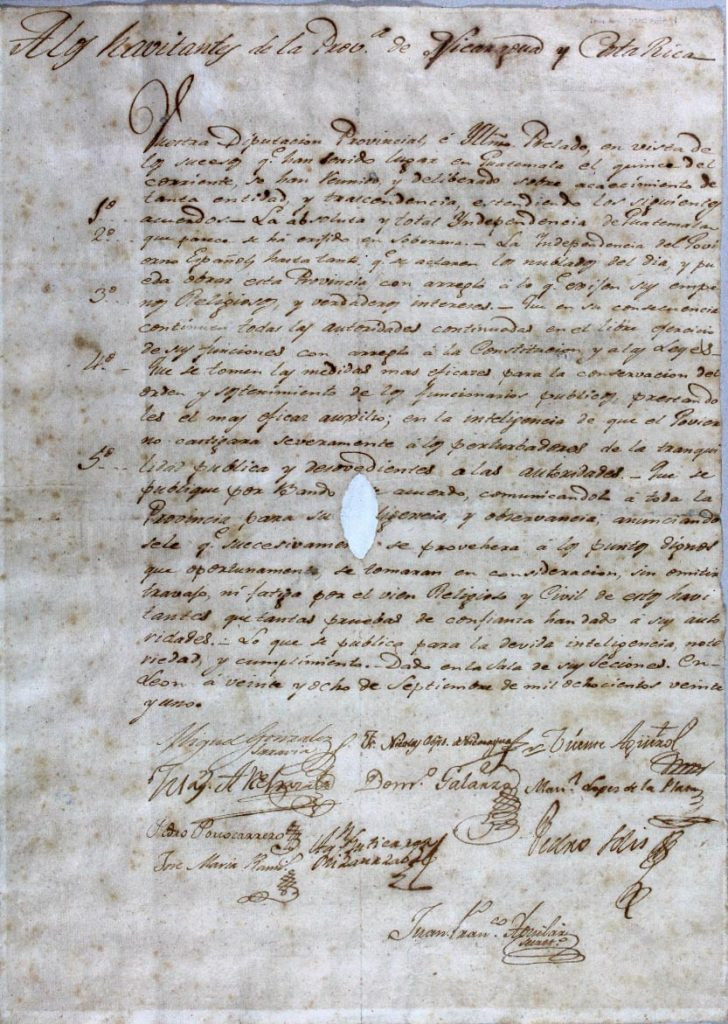 A los havitantes de la Prov.ª de Nicaragua y Costa Rica
Vuestra Diputacion Provincial, é Illmo. Prelado, en vista de
los sucesos q.e han tenido lugar en Guatemala el quince del
corriente, se han reunido y deliberado sobre acaecimiento de
tanta entidad, y trascendencia, estendiendo los siguientes
1.º acuerdos.- La absoluta y total Independencia de Guatemala
2.º que parece se há erijido en Soberana.- La independencia del Govi
erno Español, hasta tanto q.e se aclaren los nublados del dia, y pu
eda obrar esta Provincia con arreglo á lo q.e exijan sus empe
3.º ños Religiosos, y verdaderos intereses.- Que en su consecuencia
continuen todas las autoridades continuadas en el libre ejercicio
de sus funciones con arreglo á la Constitucion y a las Leyes.-
4.º Que se tomen las medidas mas eficaces para la conservacion del
orden y sostenimiento de los funcionarios publicos, prestando
les el mas eficaz auxilio; en la inteligencia de que el Govier
no castigara severamente á los perturbadores de la tranqui
5.º lidad publica y desovedientes a las autoridades.- Que se
publique por Bando acuerdo, comunicandolo á toda la
Provincia para su ligencia, y observancia, anunciando
sele q.e succesivamen se provehera á los puntos dignos
que oportunamente se tomaran en consideracion, sin omitir
travajo, ni fatiga por el vien Religioso y Civil de estos havi
tantes que tantas pruebas de confianza han dado á sus auto
ridades.- Lo que se publica para la devida inteligencia, noto
riedad, y cumplimiento. Dado en la Sala de sus Secciones. En
Leon á veinte y ocho de Septiembre de mil ochocientos veinte
y uno.
Miguel Gonzalez Saravia
Fr. Nicolas Obpo. de Nicaragua
Vicente Agüero
Domº. Galarza
Manl. Lopez de la Plata
Pedro Portocarrero
Agn. Gutierrez Lizaurzabal
Pedro Solis
Jose Maria Ramz.
Juan Fran.co Aguilar
Secret.º